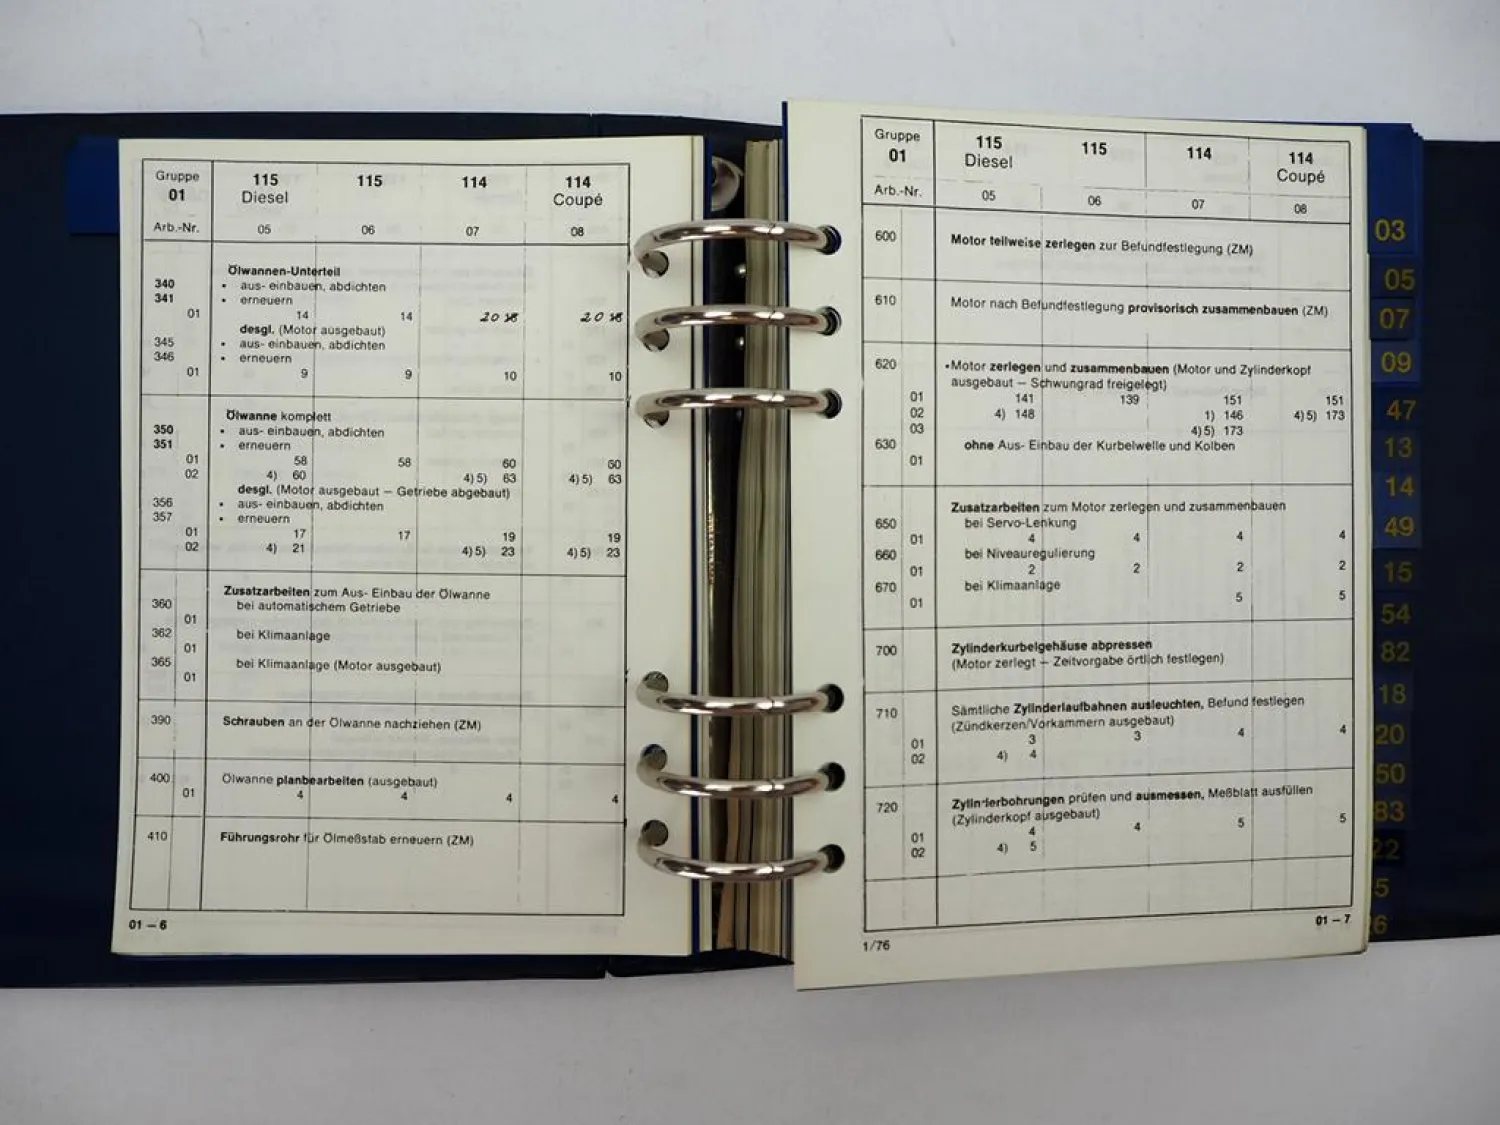 Gruppe 115 115 114 114
01 Diesel Coupé
Arb.-Nr. 05 06 07 08
Ölwannen-Unterteil
340 • aus- einbauen, abdichten
341 • erneuern
01 14 14 20 20
desgl. (Motor ausgebaut)
345 • aus- einbauen, abdichten
346 • erneuern
01 9 9 10 10
Ölwanne komplett
350 • aus- einbauen, abdichten
351 • erneuern
01 58 58 60 60
02 4) 60 4) 5) 63 4) 5) 63
desgl. (Motor ausgebaut – Getriebe abgebaut)
356 • aus- einbauen, abdichten
357 • erneuern
01 17 17 19 19
02 4) 21 4) 5) 23 4) 5) 23
Zusatzarbeiten zum Aus- Einbau der Ölwanne
360 bei automatischem Getriebe
01
362 bei Klimaanlage
01
365 bei Klimaanlage (Motor ausgebaut)
01
390 Schrauben an der Ölwanne nachziehen (ZM)
400 Ölwanne planbearbeiten (ausgebaut)
01 4 4 4 4
410 Führungsrohr für Ölmeßstab erneuern (ZM)
01 – 6
Gruppe 115 115 114 114
01 Diesel Coupé
Arb.-Nr. 05 06 07 08
600 Motor teilweise zerlegen zur Befundfestlegung (ZM)
610 Motor nach Befundfestlegung provisorisch zusammenbauen (ZM)
620 • Motor zerlegen und zusammenbauen (Motor und Zylinderkopf
ausgebaut – Schwungrad freigelegt)
01 141 139 151 151
02 4) 148 1) 146 4) 5) 173
03 4) 5) 173
630 ohne Aus- Einbau der Kurbelwelle und Kolben
01
Zusatzarbeiten zum Motor zerlegen und zusammenbauen
650 bei Servo-Lenkung
01 4 4 4 4
660 bei Niveauregulierung
01 2 2 2 2
670 bei Klimaanlage
01 5 5
700 Zylinderkurbelgehäuse abpressen
(Motor zerlegt – Zeitvorgabe örtlich festlegen)
710 Sämtliche Zylinderlaufbahnen ausleuchten, Befund festlegen
(Zündkerzen/Vorkammern ausgebaut)
01 3 3 4 4
02 4) 4
720 Zylinderbohrungen prüfen und ausmessen, Meßblatt ausfüllen
(Zylinderkopf ausgebaut)
01 4 4 5 5
02 4) 5
01 – 7
1/76
03
05
07
09
47
13
14
49
15
54
82
18
20
50
83
22
5
6